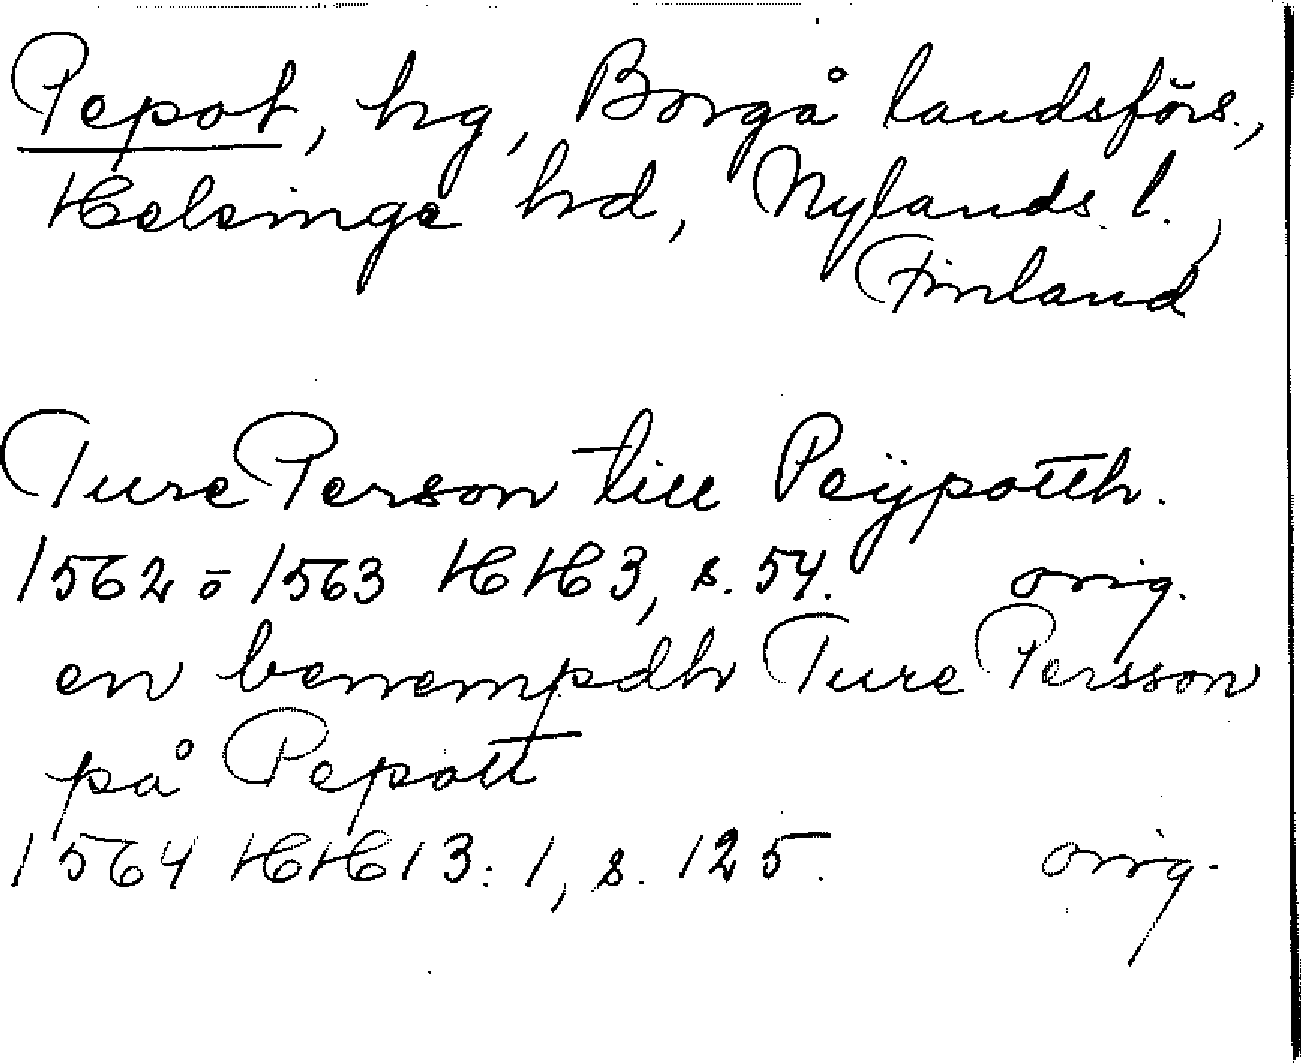 Pepot, hg, Borgå landsförs.,
Helsinge hd, Nylands l.,
Finland
Ture Person till Peÿpotth.
1562 ō 1563 HH 3, s. 54. orig.
en benempdh Ture Persson
på Pepott
1564 HH 13:1, s. 125. orig.